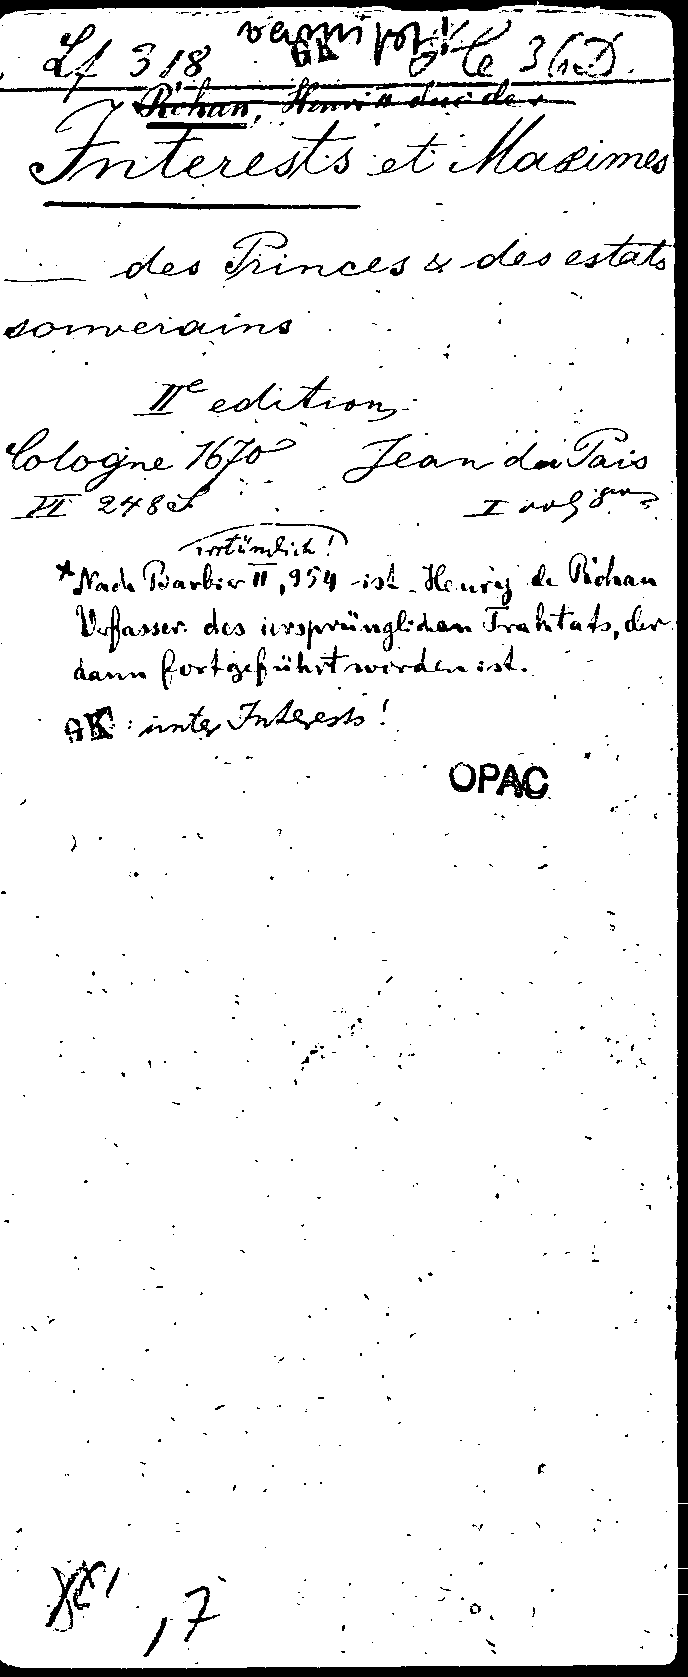 Lf 318 vermißt! le 36D
GK
Rohan, Henri II duc de
Interests et Maximes
— des Princes & des estats
souverains
IIe edition
Cologne 1670 Jean du Pais
VI 248 S I vol 8vo
irrtümlich!
*Nach Barbier II, 954 ist Henry de Rohan
Verfasser des ursprünglichen Traktats, der
dann fortgeführt worden ist.
GK: unter Interests!
OPAC
, 7